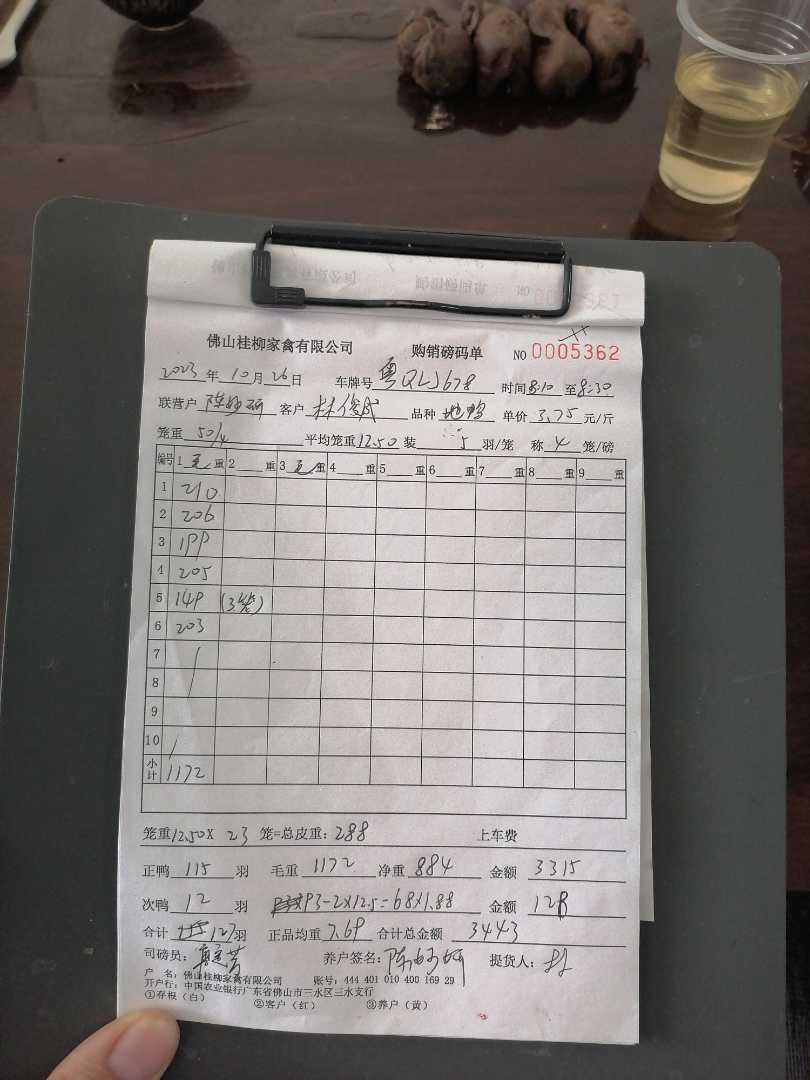 佛山桂柳家禽有限公司 购销磅码单 NO 0005362
2023年10月26日 车牌号 粤QLJ678 时间8:10至8:30
联营户 陈 客户 林俊 品种 地鸭 单价 3.75 元/斤
笼重 50/4 平均笼重12.50 装 5 羽/笼 称 4 笼/磅
编号 1毛重 2 重 3毛重 4 重 5 重 6 重 7 重 8 重 9 重
1 210
2 206
3 199
4 205
5 149 (3笼)
6 203
7
8
9
10
小计 1172
笼重12.50X 23 笼=总皮重:288 上车费
正鸭 115 羽 毛重 1172 净重 884 金额 3315
次鸭 12 羽 93-2X12.5=68X1.88 金额 128
合计 127羽 正品均重 7.69 合计总金额 3443
司磅员: 养户签名:陈 提货人:
户 名:佛山桂柳家禽有限公司 账号:444 401 010 400 169 29
开户行:中国农业银行广东省佛山市三水区三水支行
①存根(白) ②客户(红) ③养户(黄)